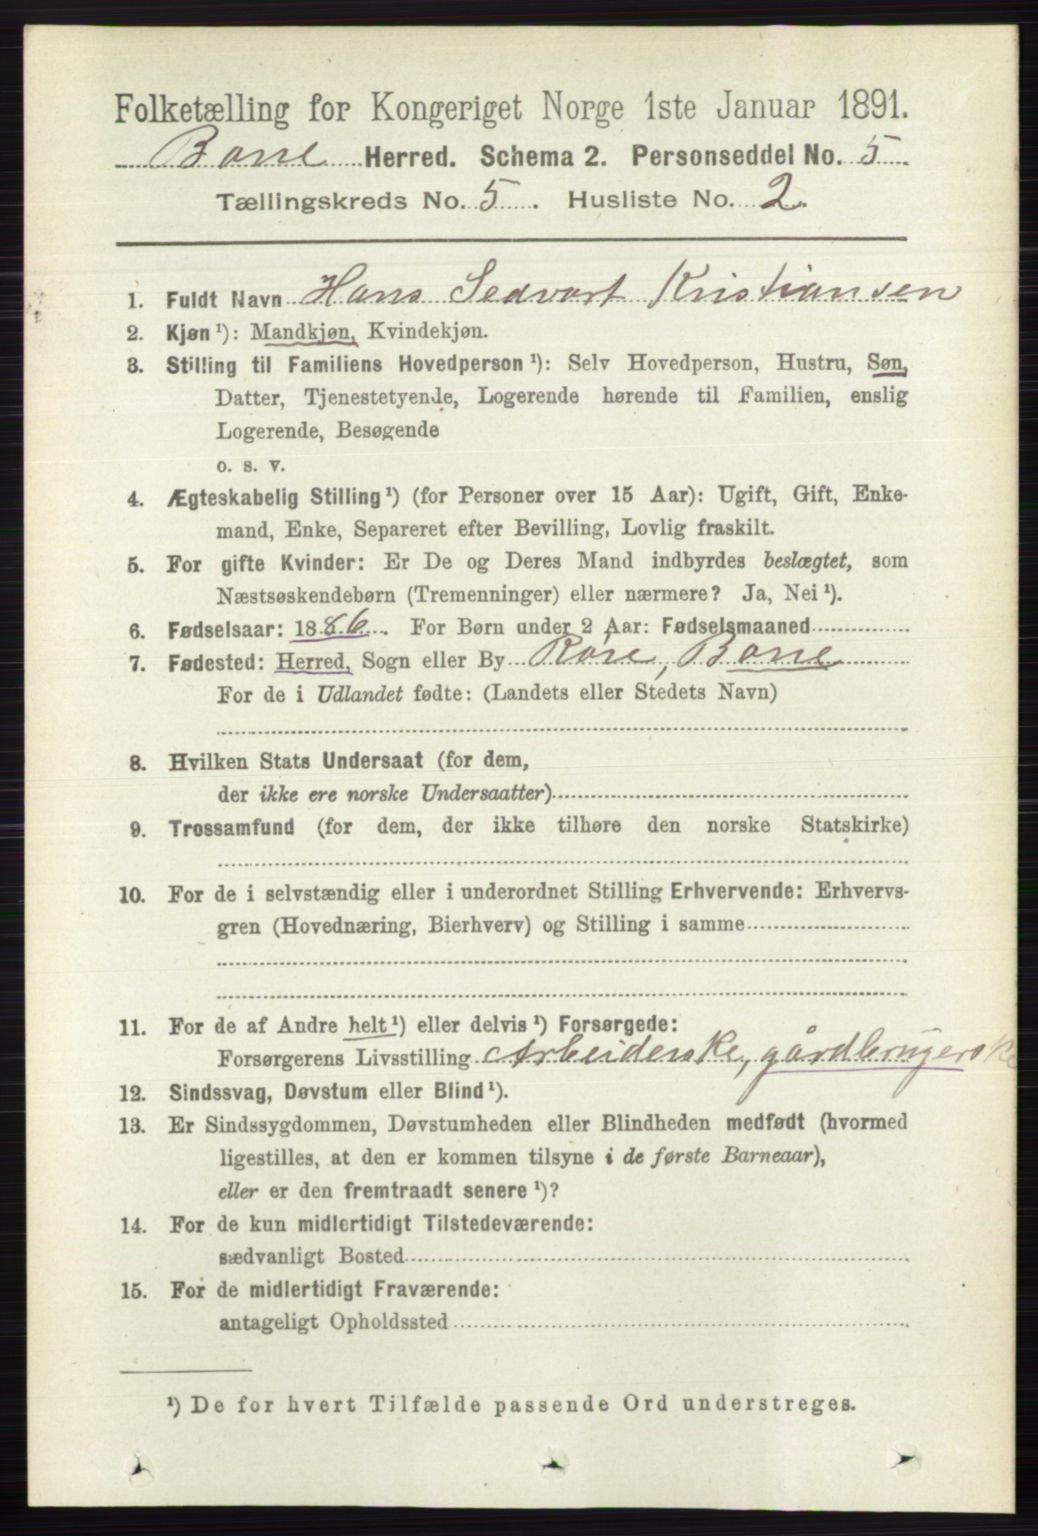 Folketælling for Kongeriget Norge 1ste Januar 1891.
Borre Herred. Schema 2. Personseddel No. 5
Tællingskreds No. 5. Husliste No. 2.
1. Fuldt Navn Hans Sedvart Kristiansen
2. Kjøn ¹): Mandkjøn, Kvindekjøn.
3. Stilling til Familiens Hovedperson ¹): Selv Hovedperson, Hustru, Søn,
Datter, Tjenestetyende, Logerende hørende til Familien, enslig
Logerende, Besøgende
o. s. v.
4. Ægteskabelig Stilling ¹) (for Personer over 15 Aar): Ugift, Gift, Enke-
mand, Enke, Separeret efter Bevilling, Lovlig fraskilt.
5. For gifte Kvinder: Er De og Deres Mand indbyrdes beslægtet, som
Næstsøskendebørn (Tremenninger) eller nærmere? Ja, Nei ¹).
6. Fødselsaar: 1886. For Børn under 2 Aar: Fødselsmaaned
7. Fødested: Herred, Sogn eller By Röre, Borre
For de i Udlandet fødte: (Landets eller Stedets Navn)
8. Hvilken Stats Undersaat (for dem,
der ikke ere norske Undersaatter)
9. Trossamfund (for dem, der ikke tilhøre den norske Statskirke)
10. For de i selvstændig eller i underordnet Stilling Erhvervende: Erhvervs-
gren (Hovednæring, Bierhverv) og Stilling i samme
11. For de af Andre helt ¹) eller delvis ¹) Forsørgede:
Forsørgerens Livsstilling Arbeiderske, gårdbrugerske
12. Sindssvag, Døvstum eller Blind ¹).
13. Er Sindssygdommen, Døvstumheden eller Blindheden medfødt (hvormed
ligestilles, at den er kommen tilsyne i de første Barneaar),
eller er den fremtraadt senere ¹)?
14. For de kun midlertidigt Tilstedeværende:
sædvanligt Bosted
15. For de midlertidigt Fraværende:
antageligt Opholdssted
¹) De for hvert Tilfælde passende Ord understreges.